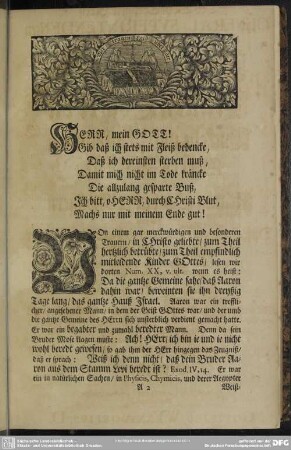 HERR, mein GOTT!
Gib daß ich stets mit Fleiß bedencke,
Daß ich dereinsten sterben muß,
Damit mich nicht im Tode kräncke
Die allzulang gesparte Buß,
Ich bitt, o HERR, durch CHristi Blut,
Machs nur mit meinem Ende gut!
VOn einem gar merckwürdigen und besonderen
Trauren, in CHristo geliebte, zum Theil
hertzlich betrübte, zum Theil empfindlich
mitleidende Kinder GOttes, lesen wir
dorten Num. XX, v. ult. wenn es heist:
Da die gantze Gemeine sahe, daß Aaron
dahin war, beweinten sie ihn dreyßig
Tage lang, das gantze Hauß Israel. Aaron war ein treffli-
cher, angesehener Mann, in dem der Geist GOttes war, und der und
die gantze Gemeine des HErrn sich unsterblich verdient gemacht hatte.
Er war ein begabter und zumahl beredter Mann. Denn da sein
Bruder Mose klagen muste: Ach! HErr, ich bin ie und ie nicht
wohl beredt gewesen, so gab ihm der HErr hingegen das Zeugniß,
daß er sprach: Weiß ich denn nicht, daß dein Bruder Aa-
ron aus dem Stamm Levi beredt ist? Exod IV, 14. Er war
ein in natürlichen Sachen, in Physicis, Chymicis, und derer
A 2 Weiß-